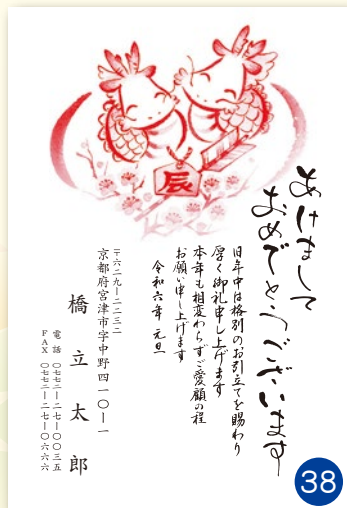 辰
あけまして
おめでとうございます
旧年中は格別のお引立てを賜わり
厚く御礼申し上げます
本年も相変わらずご愛顧の程
お願い申し上げます
令和六年 元旦
〒六二九-二二三二
京都府宮津市字中野四一〇-一
橋立太郎
電話 〇七七二-二七-〇〇三五
FAX 〇七七二-二七-〇六六六
38